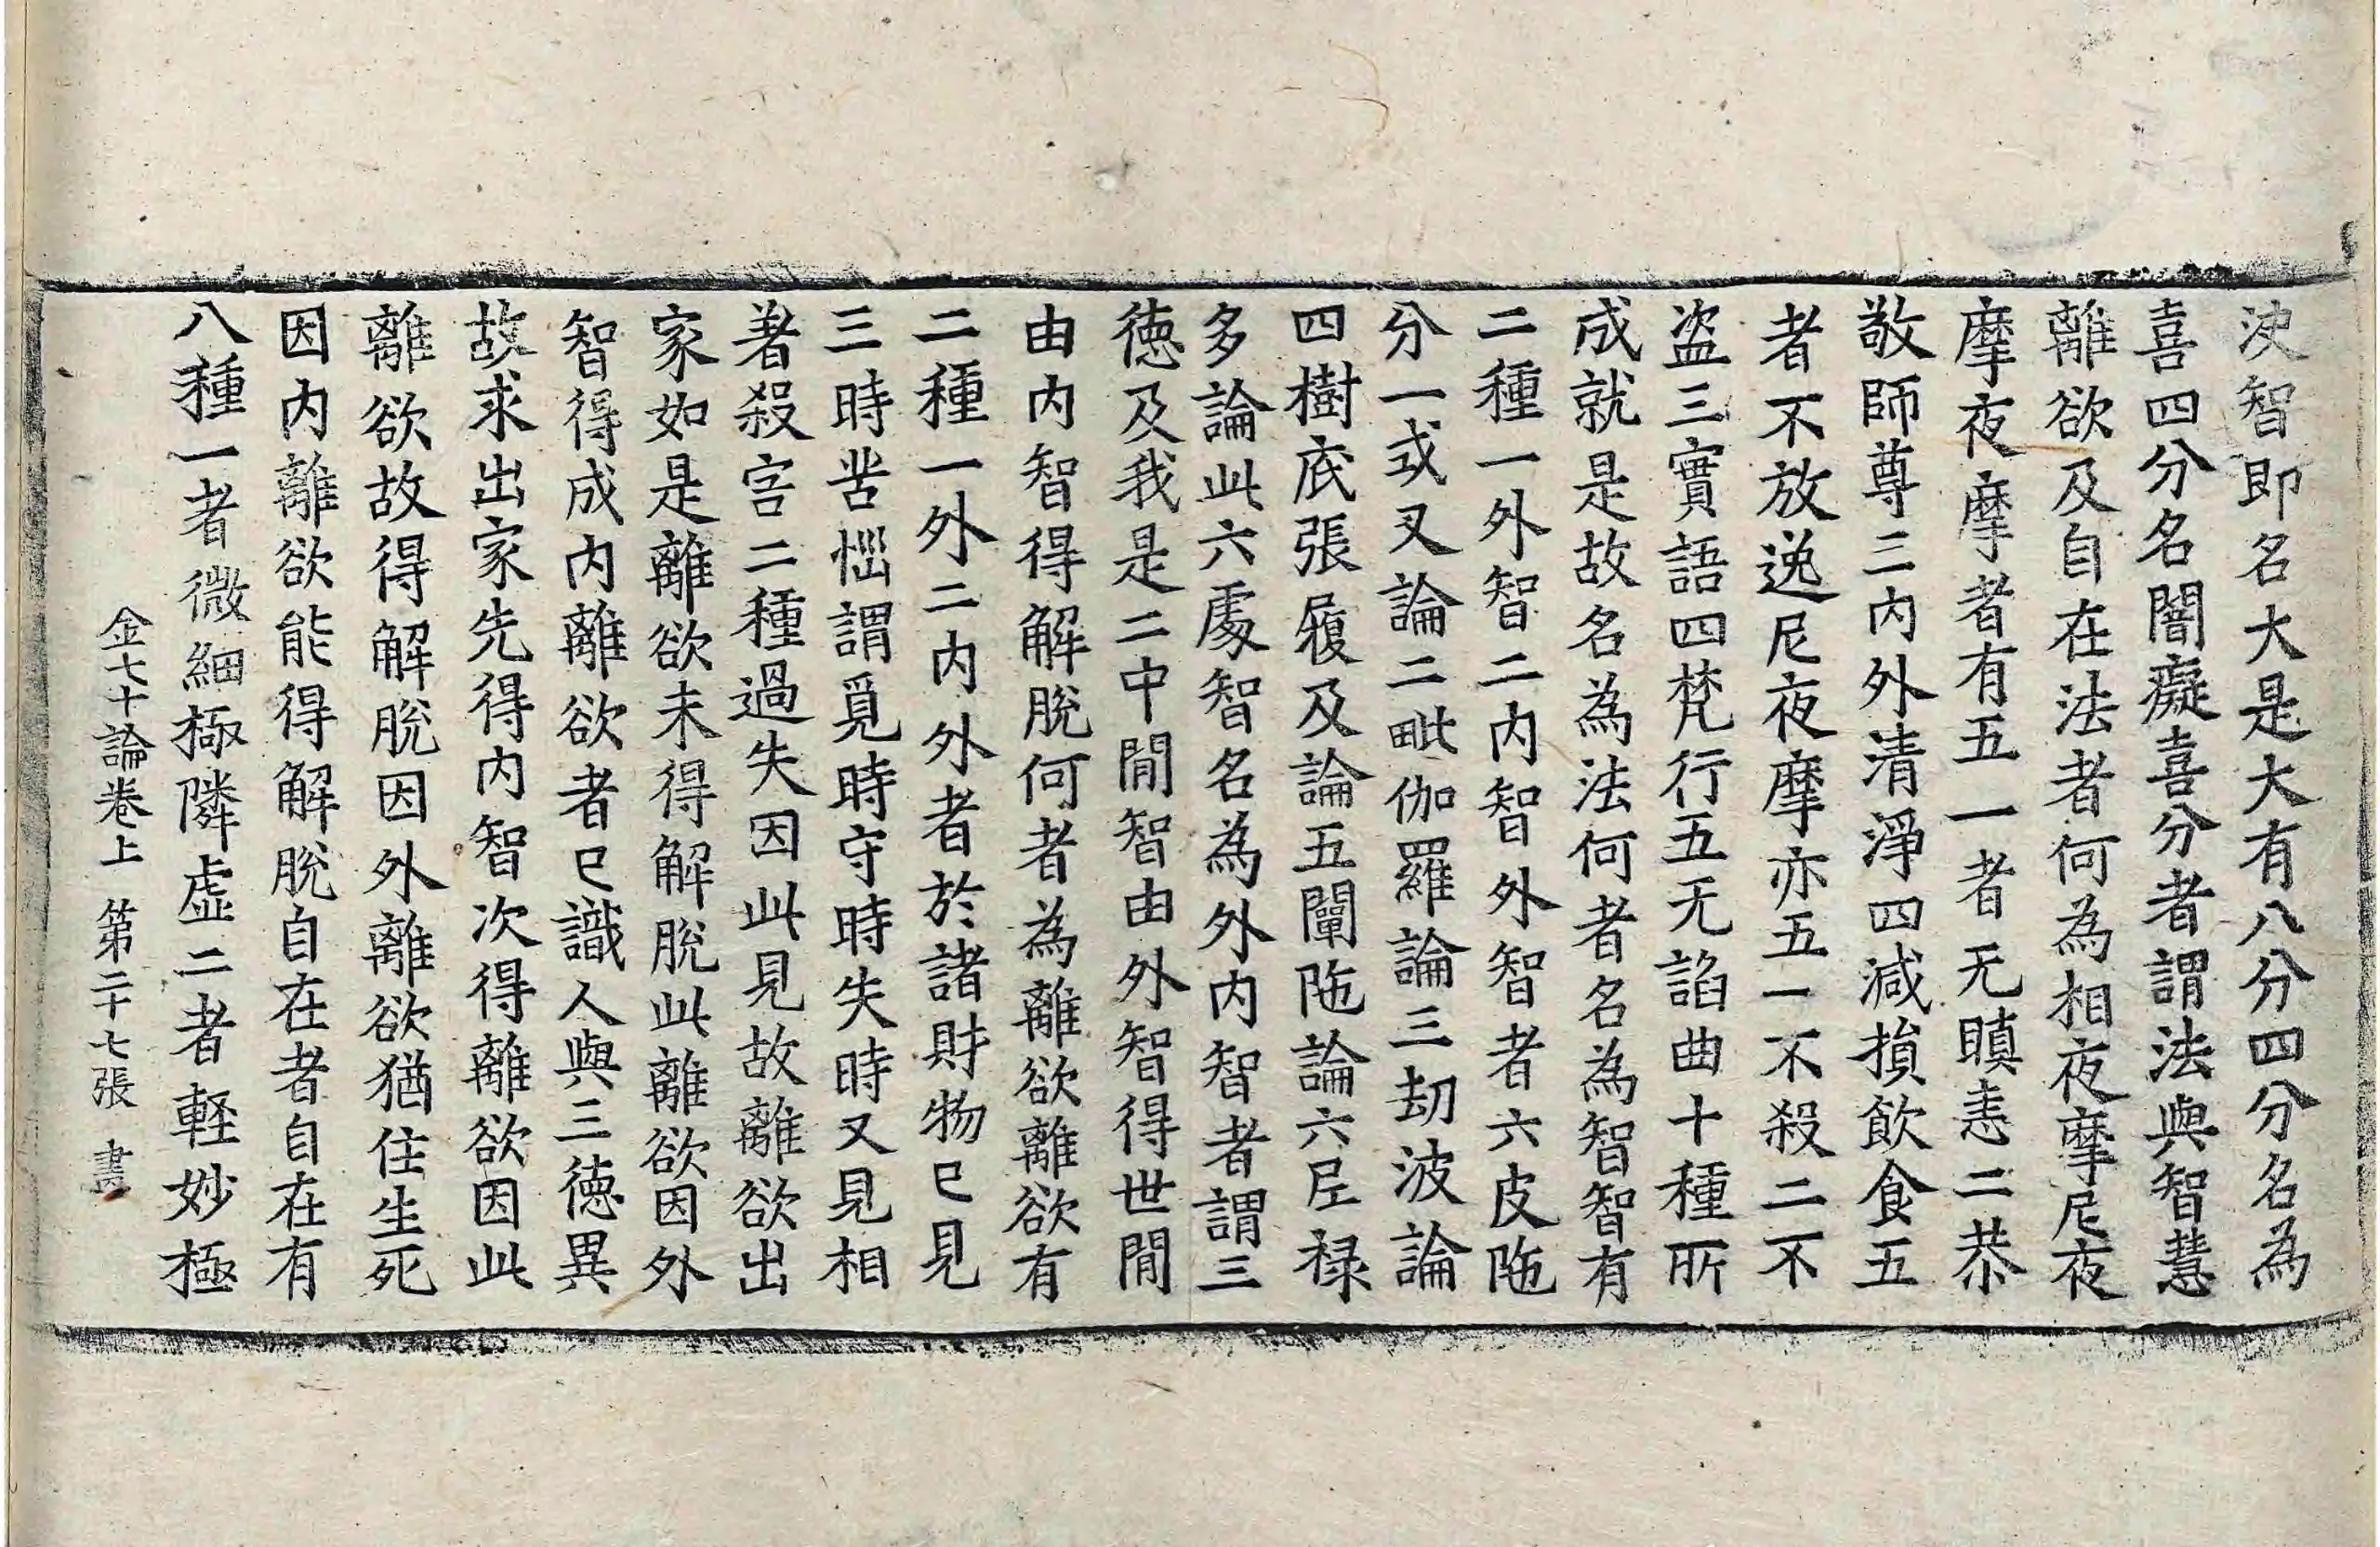 决智即名大是大有八分四分名為
喜四分名闇癡喜分者謂法與智慧
離欲及自在法者何為相夜摩尼夜
摩夜摩者有五一者无瞋恚二恭
敬師尊三內外清淨四減損飲食五
者不放逸尼夜摩亦五一不殺二不
盜三實語四梵行五无諂曲十種所
成就是故名為法何者名為智智有
二種一外智二內智外智者六皮陁
分一式叉論二毗伽羅論三劫波論
四樹底張履及論五闡陁論六尼禄
多論此六處智名為外內智者謂三
德及我是二中間智由外智得世間
由內智得解脫何者為離欲離欲有
二種一外二內外者於諸財物已見
三時苦惱謂覓時守時失時又見相
著殺害二種過失因此見故離欲出
家如是離欲未得解脫此離欲因外
智得成內離欲者已識人與三德異
故求出家先得內智次得離欲因此
離欲故得解脫因外離欲猶住生死
因內離欲能得解脫自在者自在有
八種一者微細極隣虛二者軽妙極
金七十論卷上 第二十七張 書